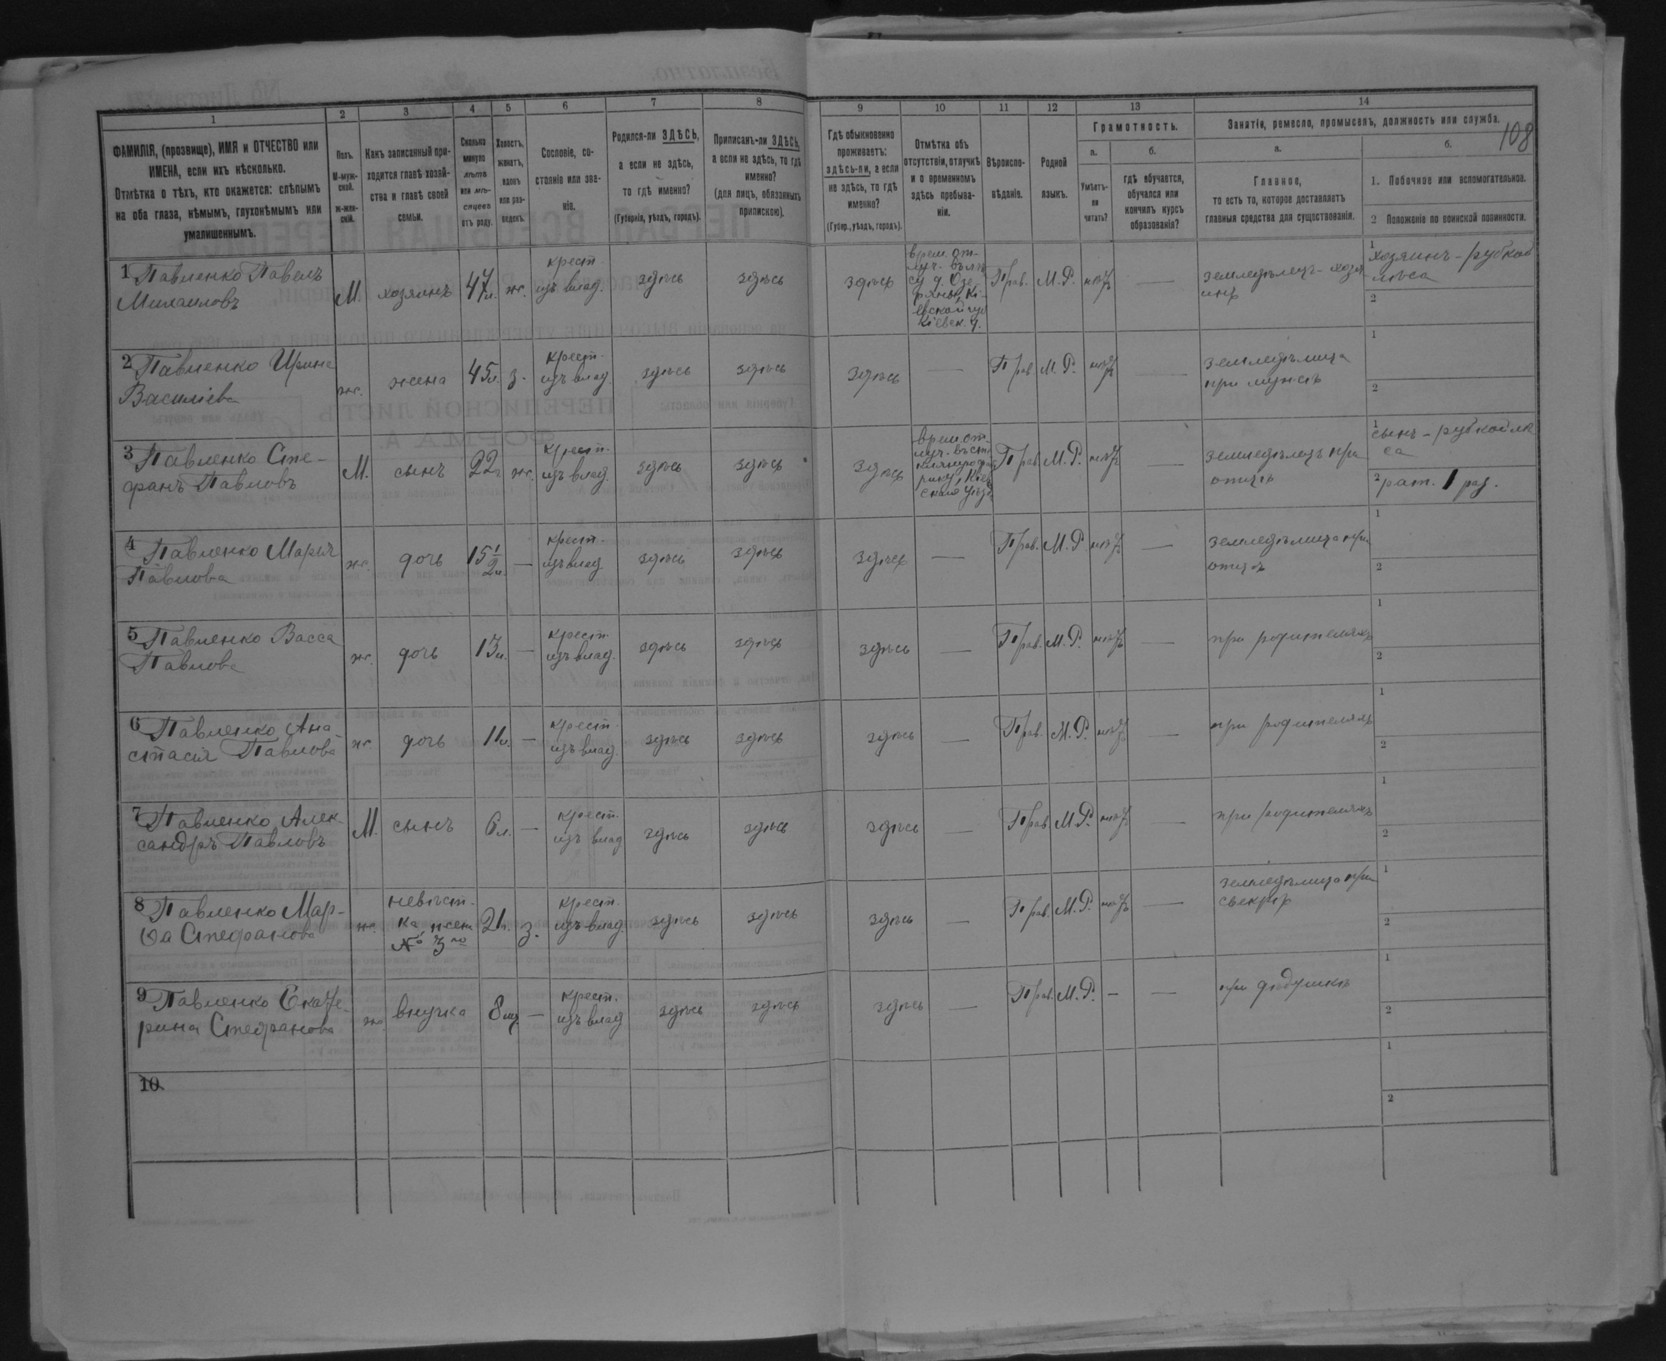 108
1 2 3 4 5 6 7 8 9 10 11 12 13 14
ФАМИЛІЯ, (прозвище), ИМЯ и ОТЧЕСТВО или
ИМЕНА, если ихъ нѣсколько.
Отмѣтка о тѣхъ, кто окажется: слѣпымъ
на оба глаза, нѣмымъ, глухонѣмымъ или
умалишеннымъ.
Полъ.
М-муж-
ской.
ж-жен-
скій.
Какъ записанный при-
ходится главѣ хозяй-
ства и главѣ своей
семьи.
Сколько
минуло
лѣтъ
или мѣ-
сяцевъ
отъ роду.
Холостъ,
женатъ,
вдовъ
или раз-
веденъ.
Сословіе, со-
стояніе или зва-
ніе.
Родился-ли ЗДѢСЬ,
а если не здѣсь,
то гдѣ именно?
(Губернія, уѣздъ, городъ).
Приписанъ-ли ЗДѢСЬ,
а если не здѣсь, то гдѣ
именно?
(для лицъ, обязанныхъ
припискою).
Гдѣ обыкновенно
проживаетъ:
здѣсь-ли, а если
не здѣсь, то гдѣ
именно?
(Губер., уѣздъ, городъ).
Отмѣтка объ
отсутствіи, отлучкѣ
и о временномъ
здѣсь пребыва-
ніи.
Вѣроиспо-
вѣданіе.
Родной
языкъ.
Грамотность.
а.
Умѣетъ-
ли
читать?
б.
гдѣ обучается,
обучался или
кончилъ курсъ
образованія?
Занятіе, ремесло, промыселъ, должность или служба.
а.
Главное,
то есть то, которое доставляетъ
главныя средства для существованія.
б.
1. Побочное или вспомогательное.
2 Положеніе по воинской повинности.
1 Павленко Павелъ
М хозяинъ 47 л. ж. крест. изъ влад. здѣсь здѣсь здѣсь Прав. М.Р. нѣтъ — земледѣлецъ - хозя
инъ
1 хозяинъ - рубкой
лѣса
2
2 Павленко Ирина
Васильева
ж. жена 45 л. з. крест. изъ влад. здѣсь здѣсь здѣсь — Прав. М.Р. нѣтъ
земледѣлица
при мужѣ
1
2
3 Павленко Сте-
фанъ Павловъ
М. сынъ 22 л. ж. крест. изъ влад. здѣсь здѣсь здѣсь Прав. М.Р. нѣтъ — земледѣлецъ при
отцѣ
1 сынъ - рубкой лѣ
са
2 рат. 1 раз.
4 Павленко Марья
Павлова
ж. дочь 15 1/2 л. — крест. изъ влад. здѣсь здѣсь здѣсь — Прав. М.Р. нѣтъ — земледѣлица при
отцѣ
1
2
5 Павленко Васса
Павлова
ж. дочь 13 л. — крест. изъ влад. здѣсь здѣсь здѣсь — Прав. М.Р. нѣтъ — при родителяхъ
1
2
6 Павленко Ана
стасія Павлова
ж. дочь 11 л. — крест. изъ влад. здѣсь здѣсь здѣсь — Прав. М.Р. нѣтъ — при родителяхъ
1
2
7 Павленко Алек
сандръ Павловъ
М. сынъ 6 л. — крест. изъ влад. здѣсь здѣсь здѣсь — Прав. М.Р. нѣтъ — при родителяхъ
1
2
8 Павленко Мар-
ѳа Стефанова
ж. невѣст
ка, жена
№ 3го
21 л. з. крест. изъ влад. здѣсь здѣсь здѣсь — Прав. М.Р. нѣтъ — земледѣлица при
свекрѣ
1
2
9 Павленко Екате
рина Стефанова
ж. внучка 8 м. — крест. изъ влад. здѣсь здѣсь здѣсь — Прав. М.Р. — — при дѣдушкѣ
1
2
10.
1
2